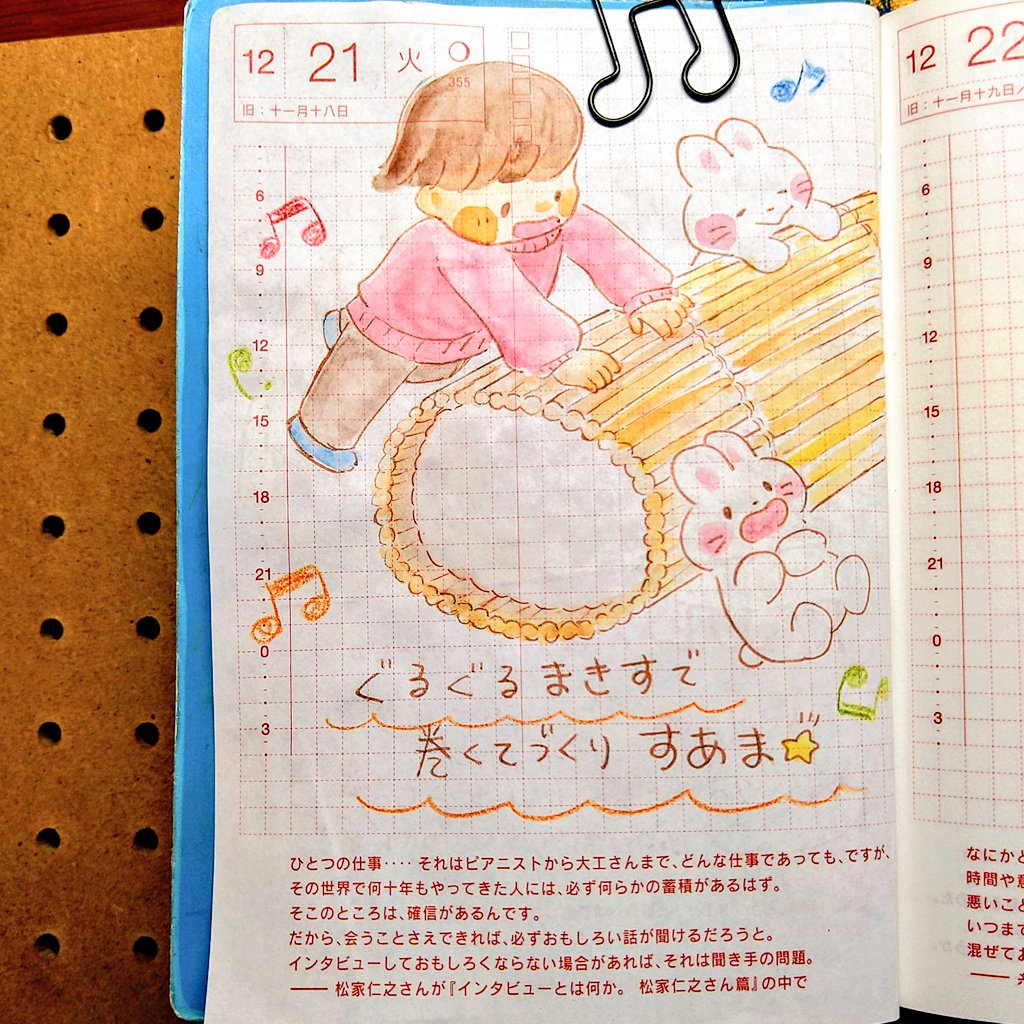 12 21 火
355
旧:十一月十八日
6
9
12
15
18
21
0
3
ぐるぐる まきすで
巻くてづくり すあま
ひとつの仕事‥‥それはピアニストから大工さんまで、どんな仕事であっても、ですが、
その世界で何十年もやってきた人には、必ず何らかの蓄積があるはず。
そこのところは、確信があるんです。
だから、会うことさえできれば、必ずおもしろい話が聞けるだろうと。
インタビューしておもしろくならない場合があれば、それは聞き手の問題。
―― 松家仁之さんが『インタビューとは何か。 松家仁之さん篇』の中で
12 22
旧:十一月十九日/
6
9
12
15
18
21
0
3
なにかと
時間や意
悪いこと
いつまで
混ぜてお